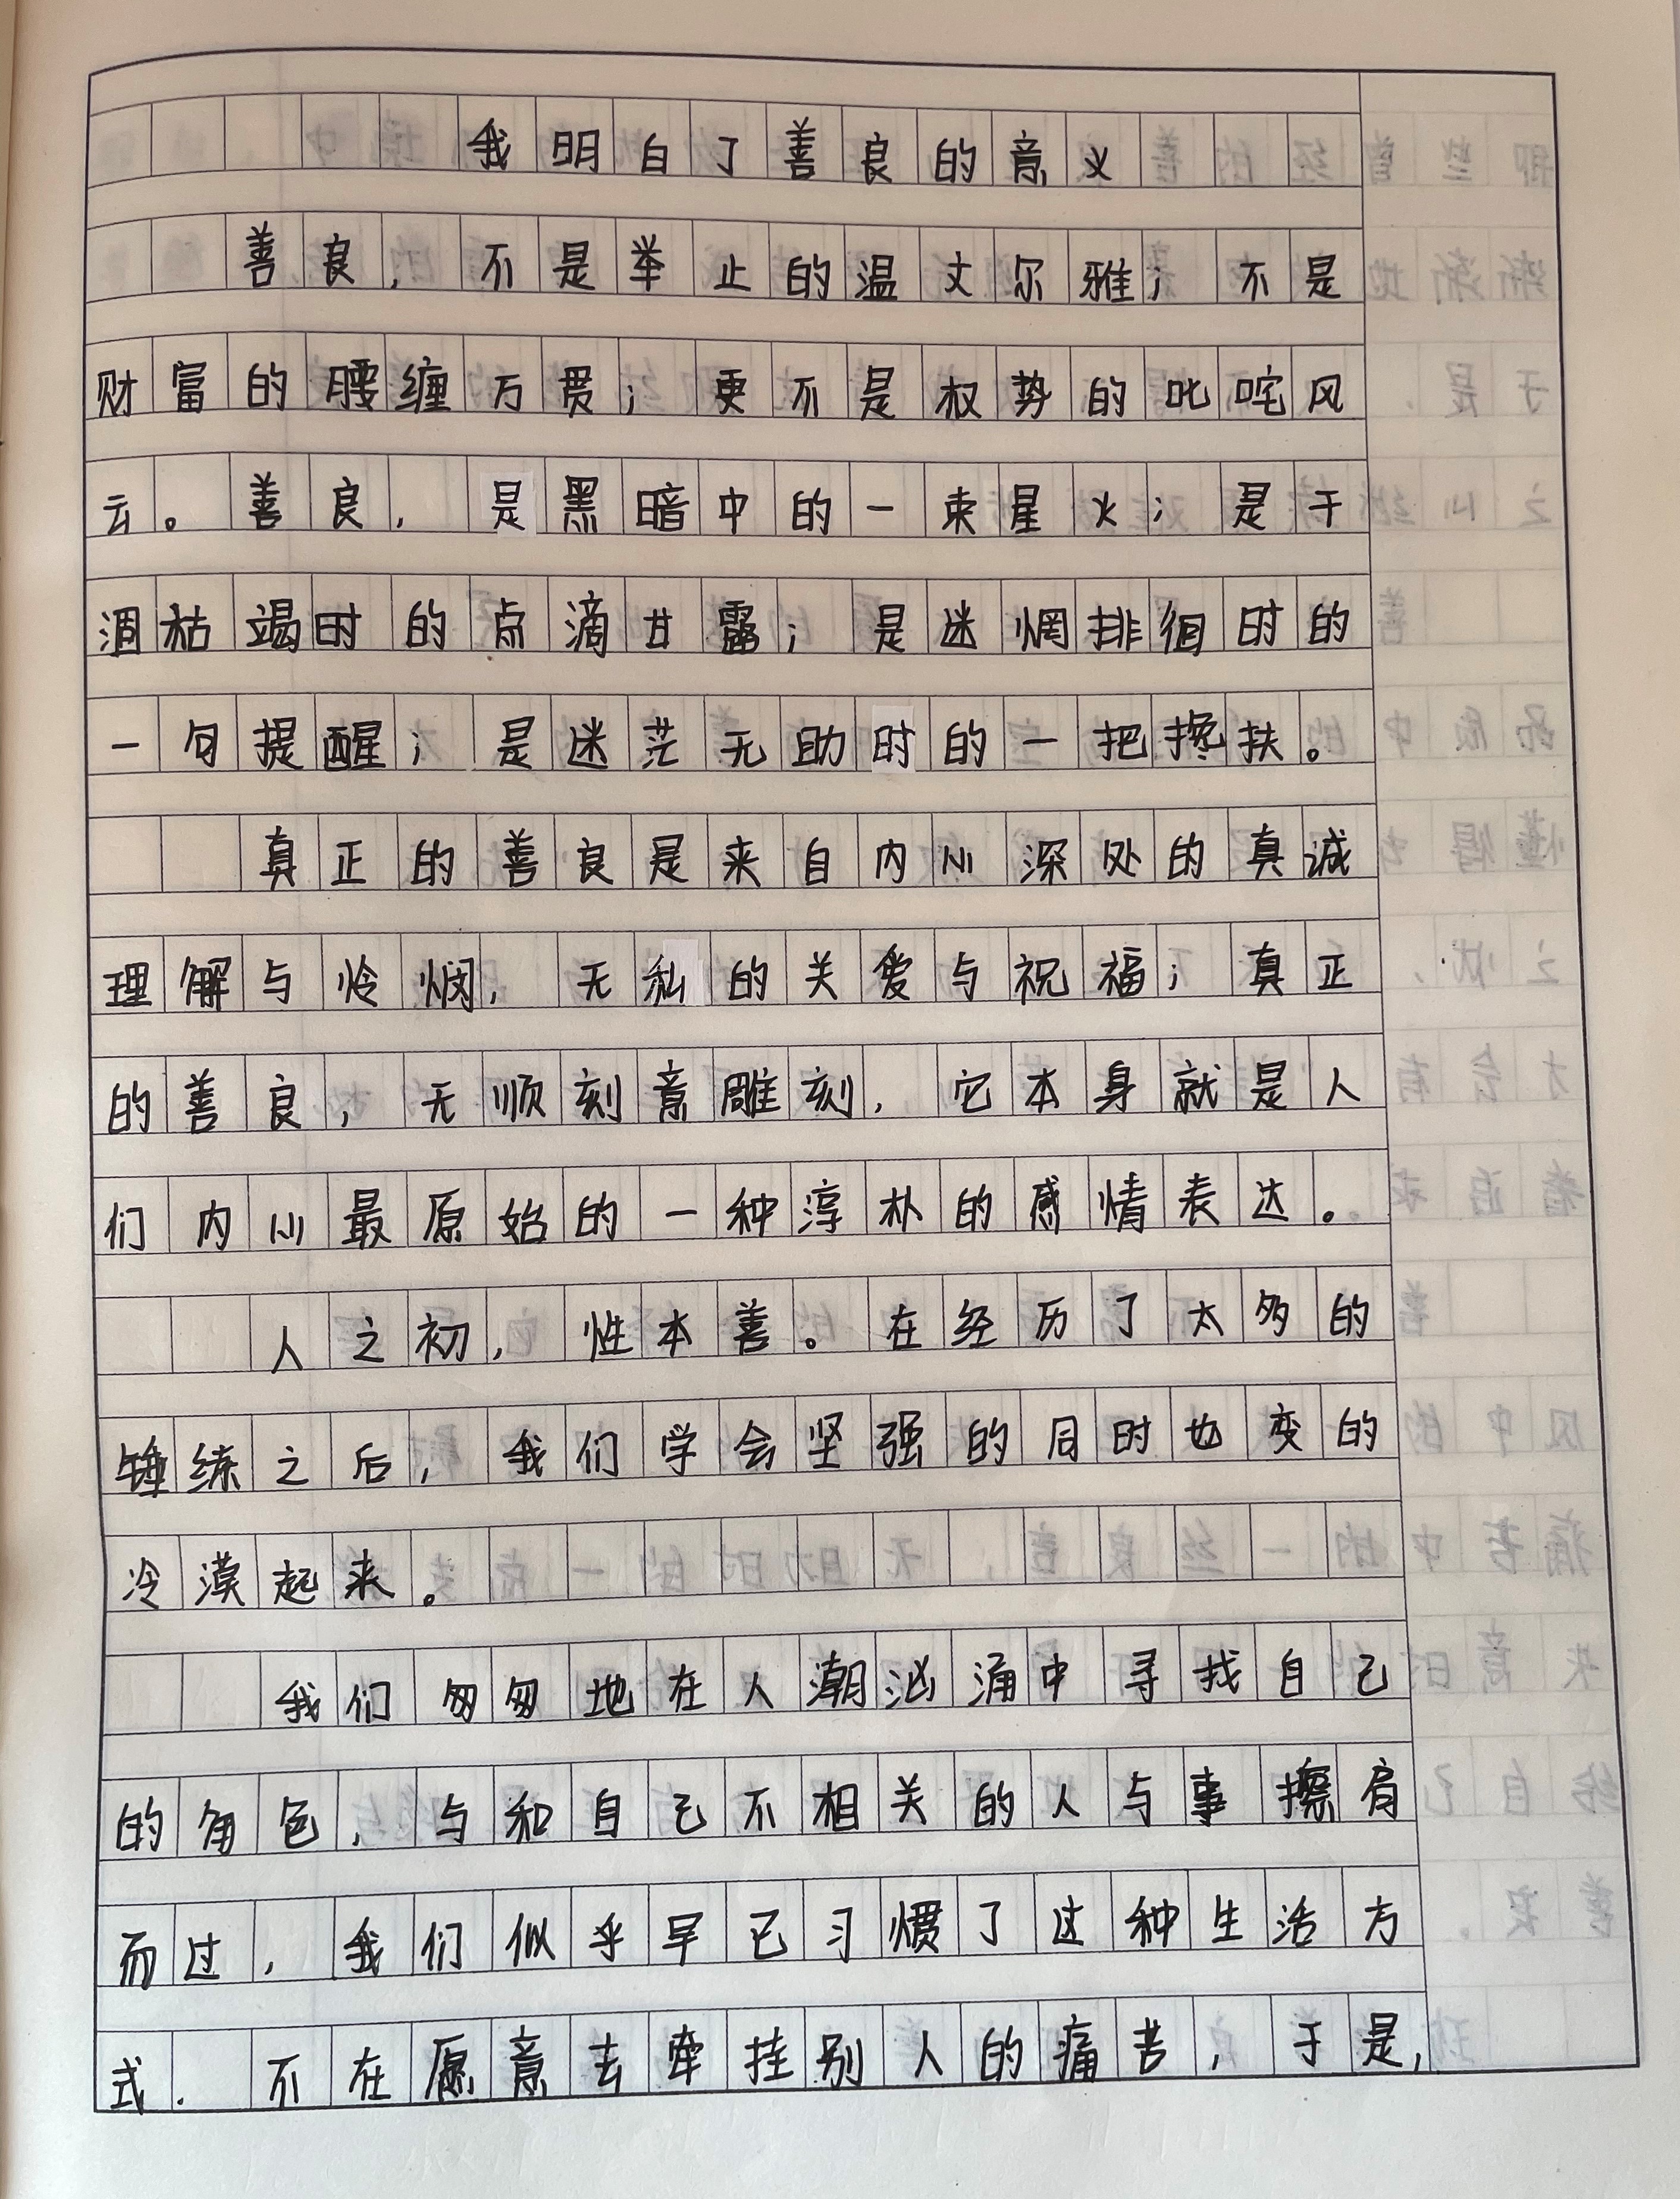 我明白了善良的意义
善良，不是举止的温文尔雅；不是
财富的腰缠万贯；更不是权势的叱咤风
云。善良，是黑暗中的一束星火；是干
涸枯竭时的点滴甘露；是迷惘排徊时的
一句提醒；是迷茫无助时的一把搀扶。
真正的善良是来自内心深处的真诚
理解与怜悯，无私的关爱与祝福；真正
的善良，无顺刻意雕刻，它本身就是人
们内心最原始的一种淳朴的感情表达。
人之初，性本善。在经历了太多的
锤练之后，我们学会坚强的同时也变的
冷漠起来。
我们匆匆地在人潮汹涌中寻找自己
的角色，与和自己不相关的人与事擦肩
而过，我们似乎早已习惯了这种生活方
式．不在愿意去牵挂别人的痛苦，于是，